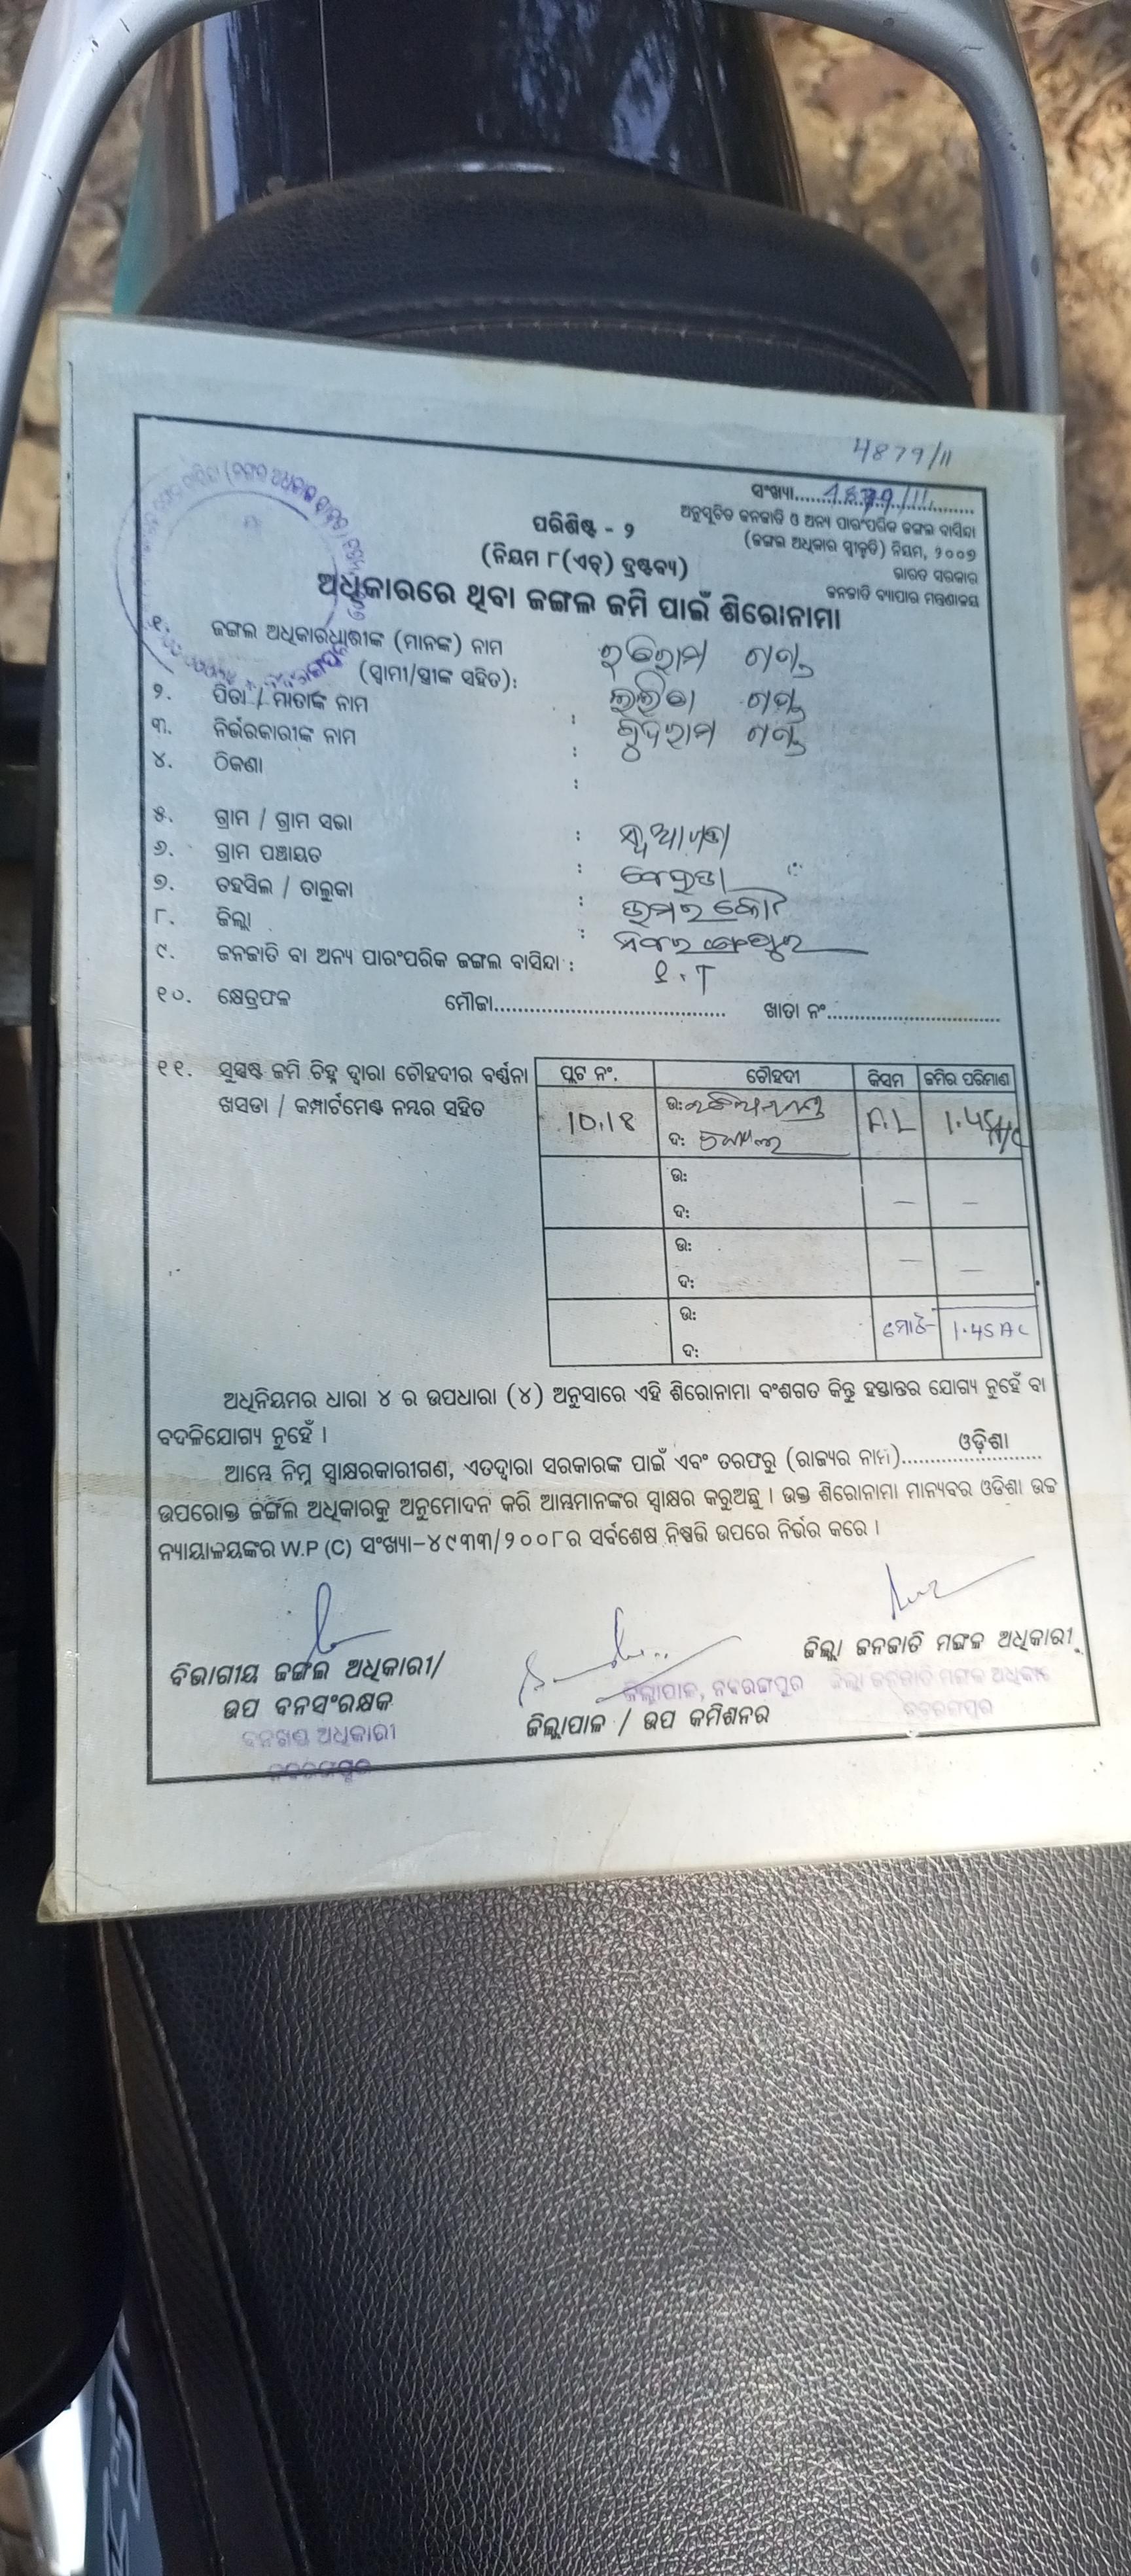 4879/11
ସଂଖ୍ୟା..... 4879/11.....
ଅନୁସୂଚିତ ଜନଜାତି ଓ ଅନ୍ୟ ପାରଂପରିକ ଜଙ୍ଗଲ ବାସିନ୍ଦା
(ଜଙ୍ଗଲ ଅଧିକାର ସ୍ୱୀକୃତି) ନିୟମ, ୨୦୦୭
ଭାରତ ସରକାର
ଜନଜାତି ବ୍ୟାପାର ମନ୍ତ୍ରଣାଳୟ
ପରିଶିଷ୍ଟ - ୨
(ନିୟମ ୮(ଏଚ୍) ଦ୍ରଷ୍ଟବ୍ୟ)
ଅଧିକାରରେ ଥିବା ଜଙ୍ଗଲ ଜମି ପାଇଁ ଶିରୋନାମା
୧. ଜଙ୍ଗଲ ଅଧିକାରଧାରୀଙ୍କ (ମାନଙ୍କ) ନାମ
(ସ୍ୱାମୀ/ସ୍ତ୍ରୀଙ୍କ ସହିତ):
୨. ପିତା / ମାତାଙ୍କ ନାମ :
୩. ନିର୍ଭରକାରୀଙ୍କ ନାମ :
୪. ଠିକଣା :
୫. ଗ୍ରାମ / ଗ୍ରାମ ସଭା :
୬. ଗ୍ରାମ ପଞ୍ଚାୟତ :
୭. ତହସିଲ / ତାଲୁକା : ଉମରକୋଟ
୮. ଜିଲ୍ଲା : ନବରଙ୍ଗପୁର
୯. ଜନଜାତି ବା ଅନ୍ୟ ପାରଂପରିକ ଜଙ୍ଗଲ ବାସିନ୍ଦା : S.T
୧୦. କ୍ଷେତ୍ରଫଳ ମୌଜା..................................... ଖାତା ନଂ............................
୧୧. ସୁସ୍ପଷ୍ଟ ଜମି ଚିହ୍ନ ଦ୍ୱାରା ଚୌହଦୀର ବର୍ଣ୍ଣନା
ଖସଡା / କମ୍ପାର୍ଟମେଣ୍ଟ ନମ୍ବର ସହିତ
ପ୍ଲଟ ନଂ. ଚୌହଦୀ କିସମ ଜମିର ପରିମାଣ
10.18 ଉ: F.L 1.45 AC
ଦ:
ଉ:
ଦ: — —
ଉ: —
ଦ: —
ଉ: ମୋଟ- 1.45 AC
ଦ:
ଅଧିନିୟମର ଧାରା ୪ ର ଉପଧାରା (୪) ଅନୁସାରେ ଏହି ଶିରୋନାମା ବଂଶଗତ କିନ୍ତୁ ହସ୍ତାନ୍ତର ଯୋଗ୍ୟ ନୁହେଁ ବା
ବଦଳିଯୋଗ୍ୟ ନୁହେଁ ।
ଆମ୍ଭେ ନିମ୍ନ ସ୍ୱାକ୍ଷରକାରୀଗଣ, ଏତଦ୍ୱାରା ସରକାରଙ୍କ ପାଇଁ ଏବଂ ତରଫରୁ (ରାଜ୍ୟର ନାମ).....ଓଡ଼ିଶା.....
ଉପରୋକ୍ତ ଜଙ୍ଗଲ ଅଧିକାରକୁ ଅନୁମୋଦନ କରି ଆମ୍ଭମାନଙ୍କର ସ୍ୱାକ୍ଷର କରୁଅଛୁ । ଉକ୍ତ ଶିରୋନାମା ମାନ୍ୟବର ଓଡିଶା ଉଚ୍ଚ
ନ୍ୟାୟାଳୟଙ୍କର W.P (C) ସଂଖ୍ୟା-୪୯୩୩/୨୦୦୮ର ସର୍ବଶେଷ ନିଷ୍ପତ୍ତି ଉପରେ ନିର୍ଭର କରେ ।
ବିଭାଗୀୟ ଜଙ୍ଗଲ ଅଧିକାରୀ/
ଉପ ବନସଂରକ୍ଷକ
ବନଖଣ୍ଡ ଅଧିକାରୀ
ନବରଙ୍ଗପୁର
ଜିଲ୍ଲାପାଳ, ନବରଙ୍ଗପୁର
ଜିଲ୍ଲାପାଳ / ଉପ କମିଶନର
ଜିଲ୍ଲା ଜନଜାତି ମଙ୍ଗଳ ଅଧିକାରୀ
ଜିଲ୍ଲା ଜନଜାତି ମଙ୍ଗଳ ଅଧିକାରୀ
ନବରଙ୍ଗପୁର